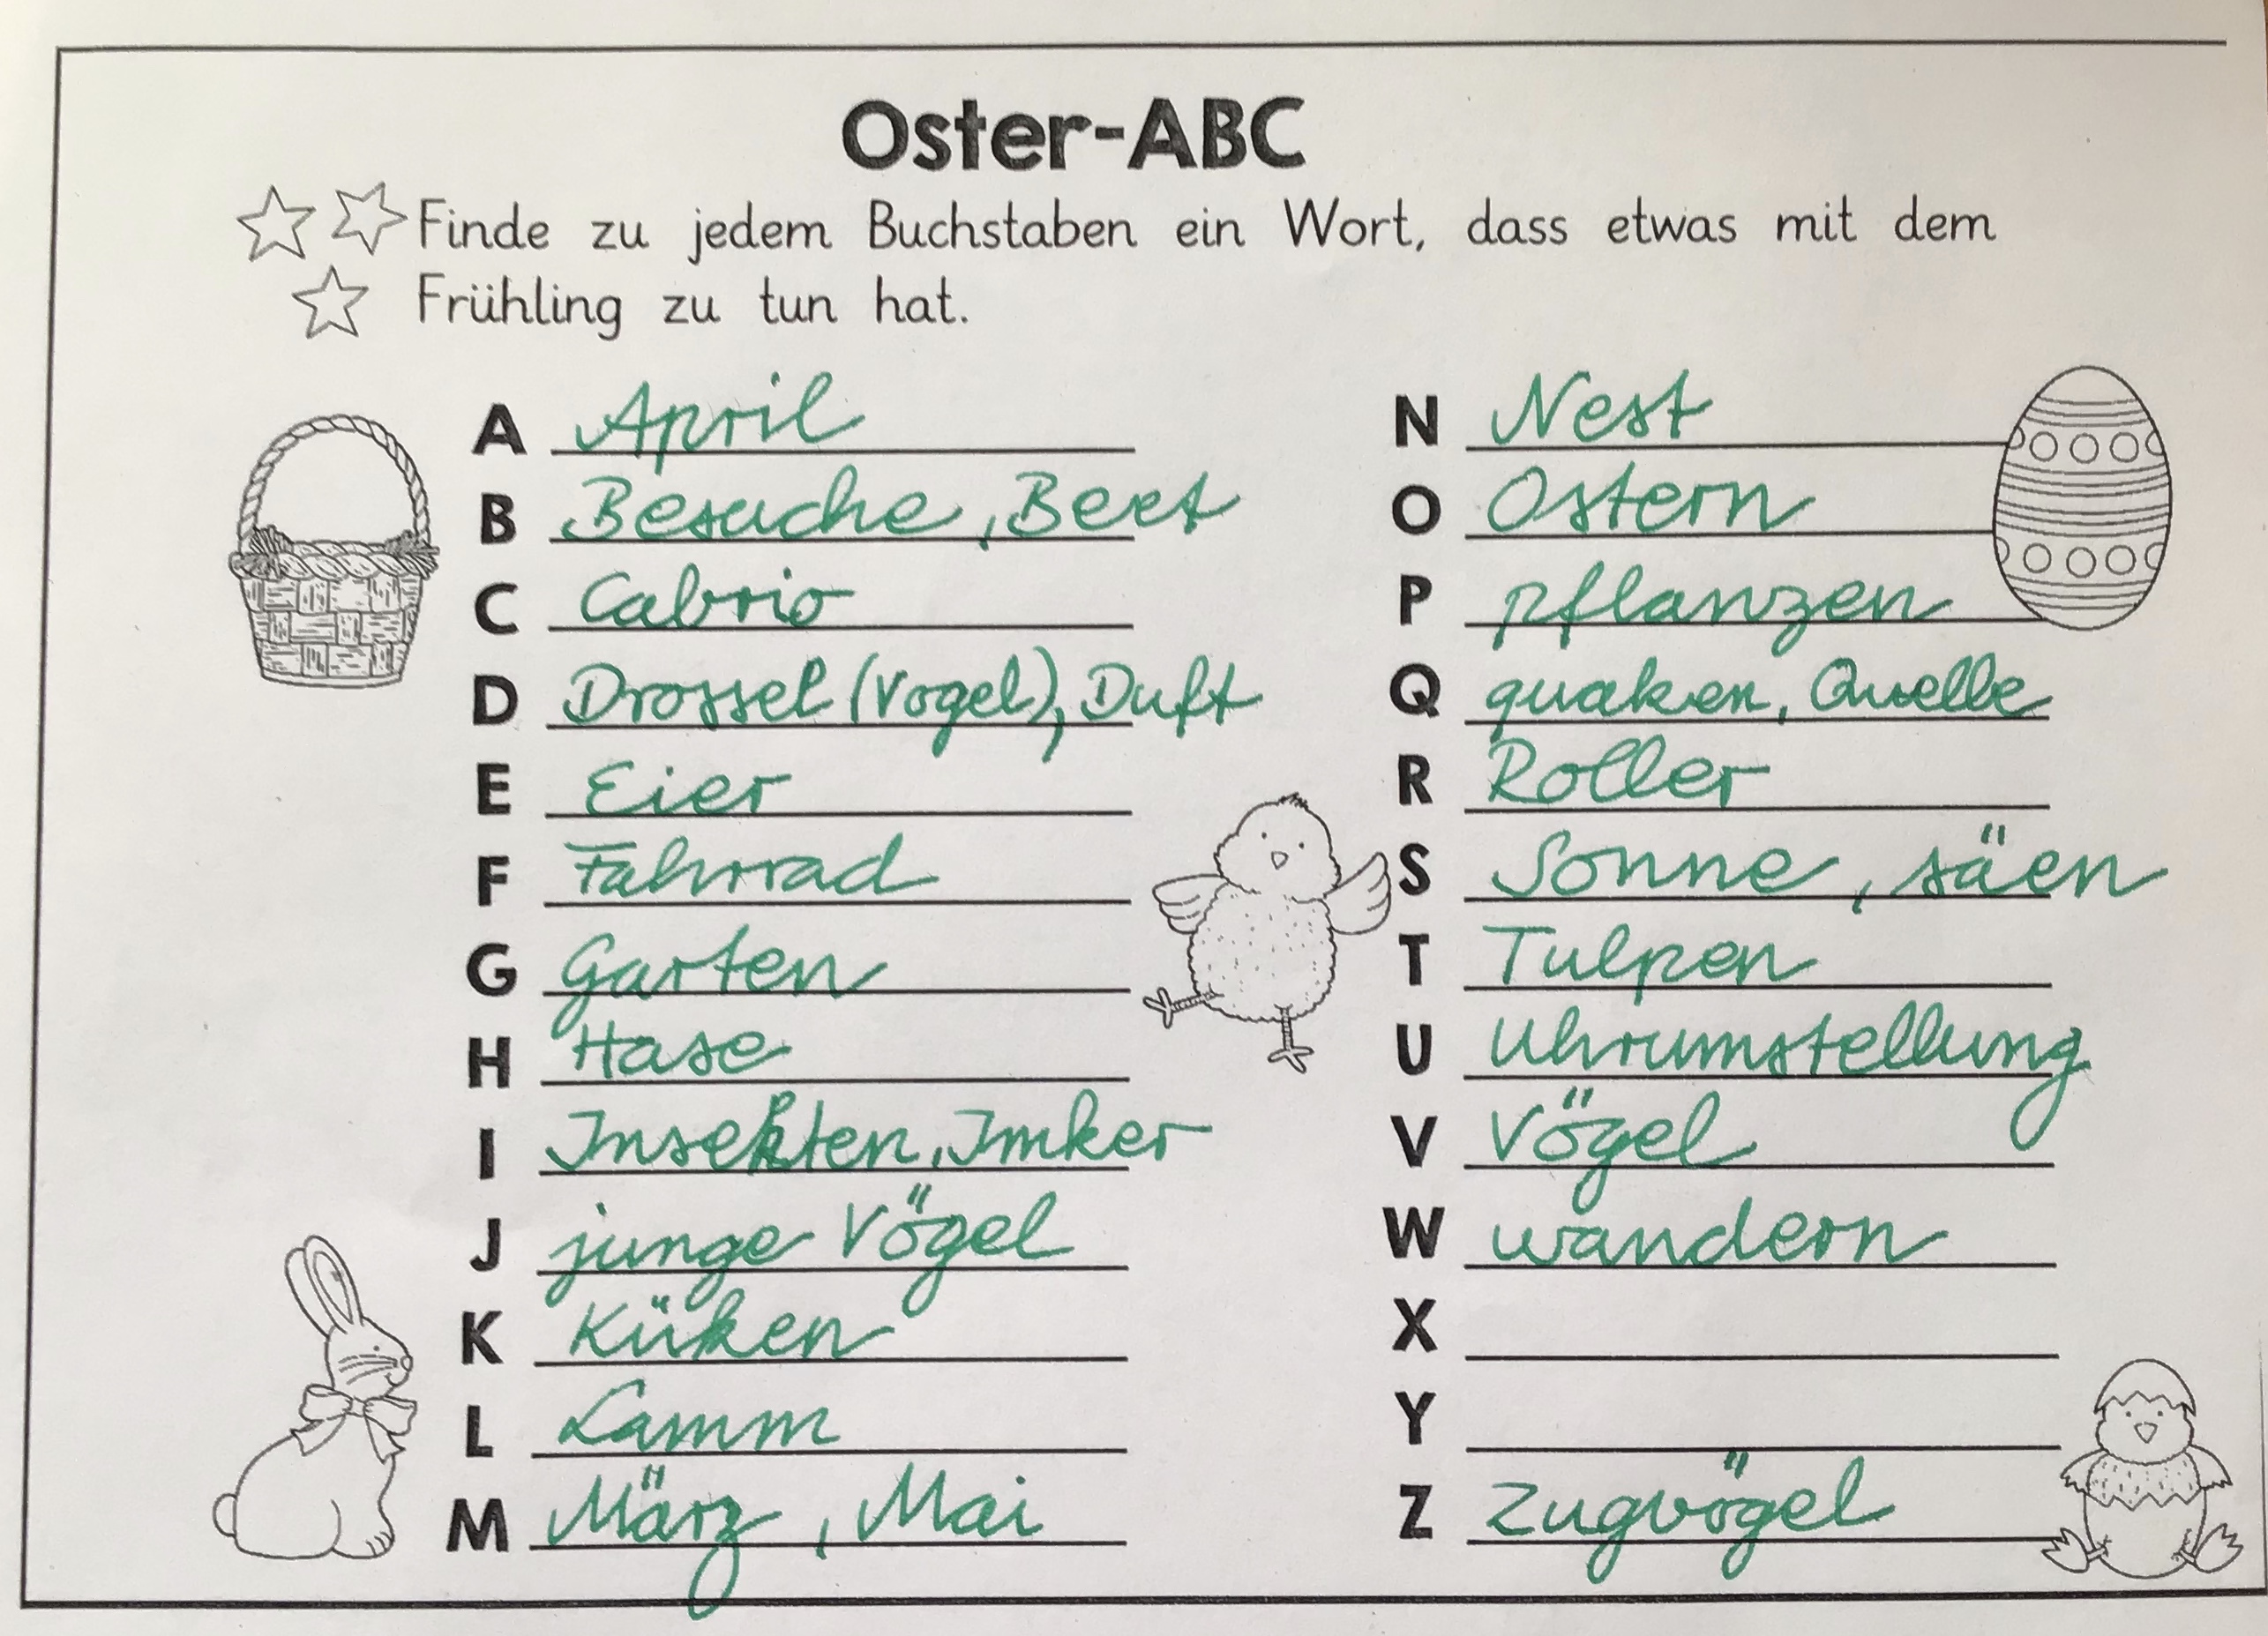 Oster-ABC
Finde zu jedem Buchstaben ein Wort, dass etwas mit dem
Frühling zu tun hat.
A April
B Besuche, Beet
C Cabrio
D Drossel (Vogel), Duft
E Eier
F Fahrrad
G Garten
H Hase
I Insekten, Imker
J junge Vögel
K Küken
L Lamm
M März, Mai
N Nest
O Ostern
P pflanzen
Q quaken, Quelle
R Roller
S Sonne, säen
T Tulpen
U Uhrumstellung
V Vögel
W wandern
X
Y
Z Zugvögel